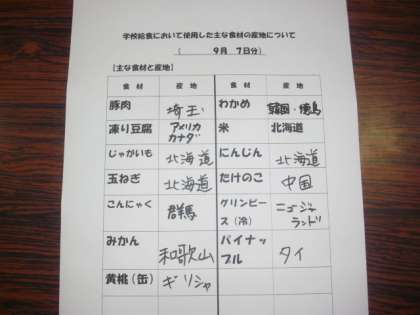 学校給食において使用した主な食材の産地について
( 9月 7日分)
【主な食材と産地】
食材 産地 食材 産地
豚肉 埼玉 わかめ 韓国・徳島
凍り豆腐 アメリカ カナダ 米 北海道
じゃがいも 北海道 にんじん 北海道
玉ねぎ 北海道 たけのこ 中国
こんにゃく 群馬 グリンピース(冷) ニュージーランド
みかん 和歌山 パイナップル タイ
黄桃(缶) ギリシャ